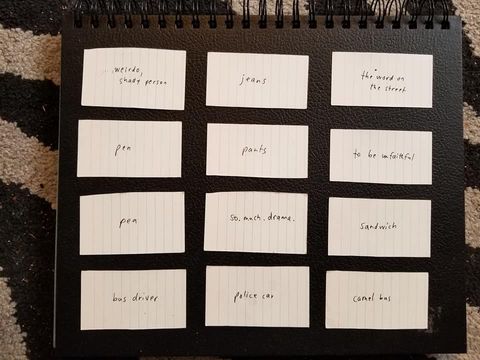 weirdo,
shady person
jeans
the word on
the street
pen
pants
to be unfaithful
pen
so. much. drama.
sandwich
bus driver
police car
camel bus